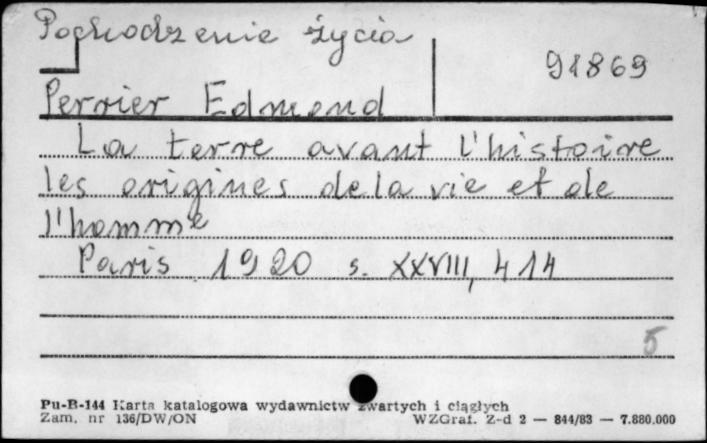 Pochodzenie życia
91869
Perrier Edmond
La terre avant l'histoire
les origines de la vie et de
l'homme
Paris 1920 s. XXVIII, 414
5
Pu-B-144 Karta katalogowa wydawnictw zwartych i ciągłych
Zam. nr 136/DW/ON WZGraf. Z-d 2 — 844/83 — 7.880.000